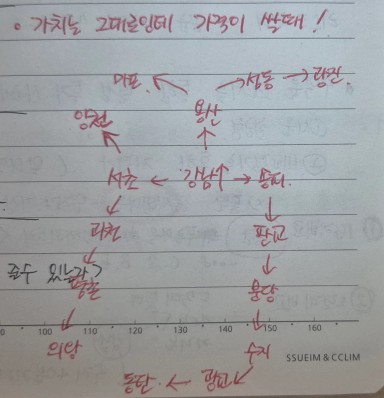 • 가치는 그대로인데 가격이 쌀때!
마포 성동 → 광진
양천 용산
서초 ← 강남↑ → 송파
과천 판교
줄수 있는가?
평촌 분당
100 110 120 130 140 150 160
의왕 수지
SSUEIM & CCLIM
동탄 ← 광교